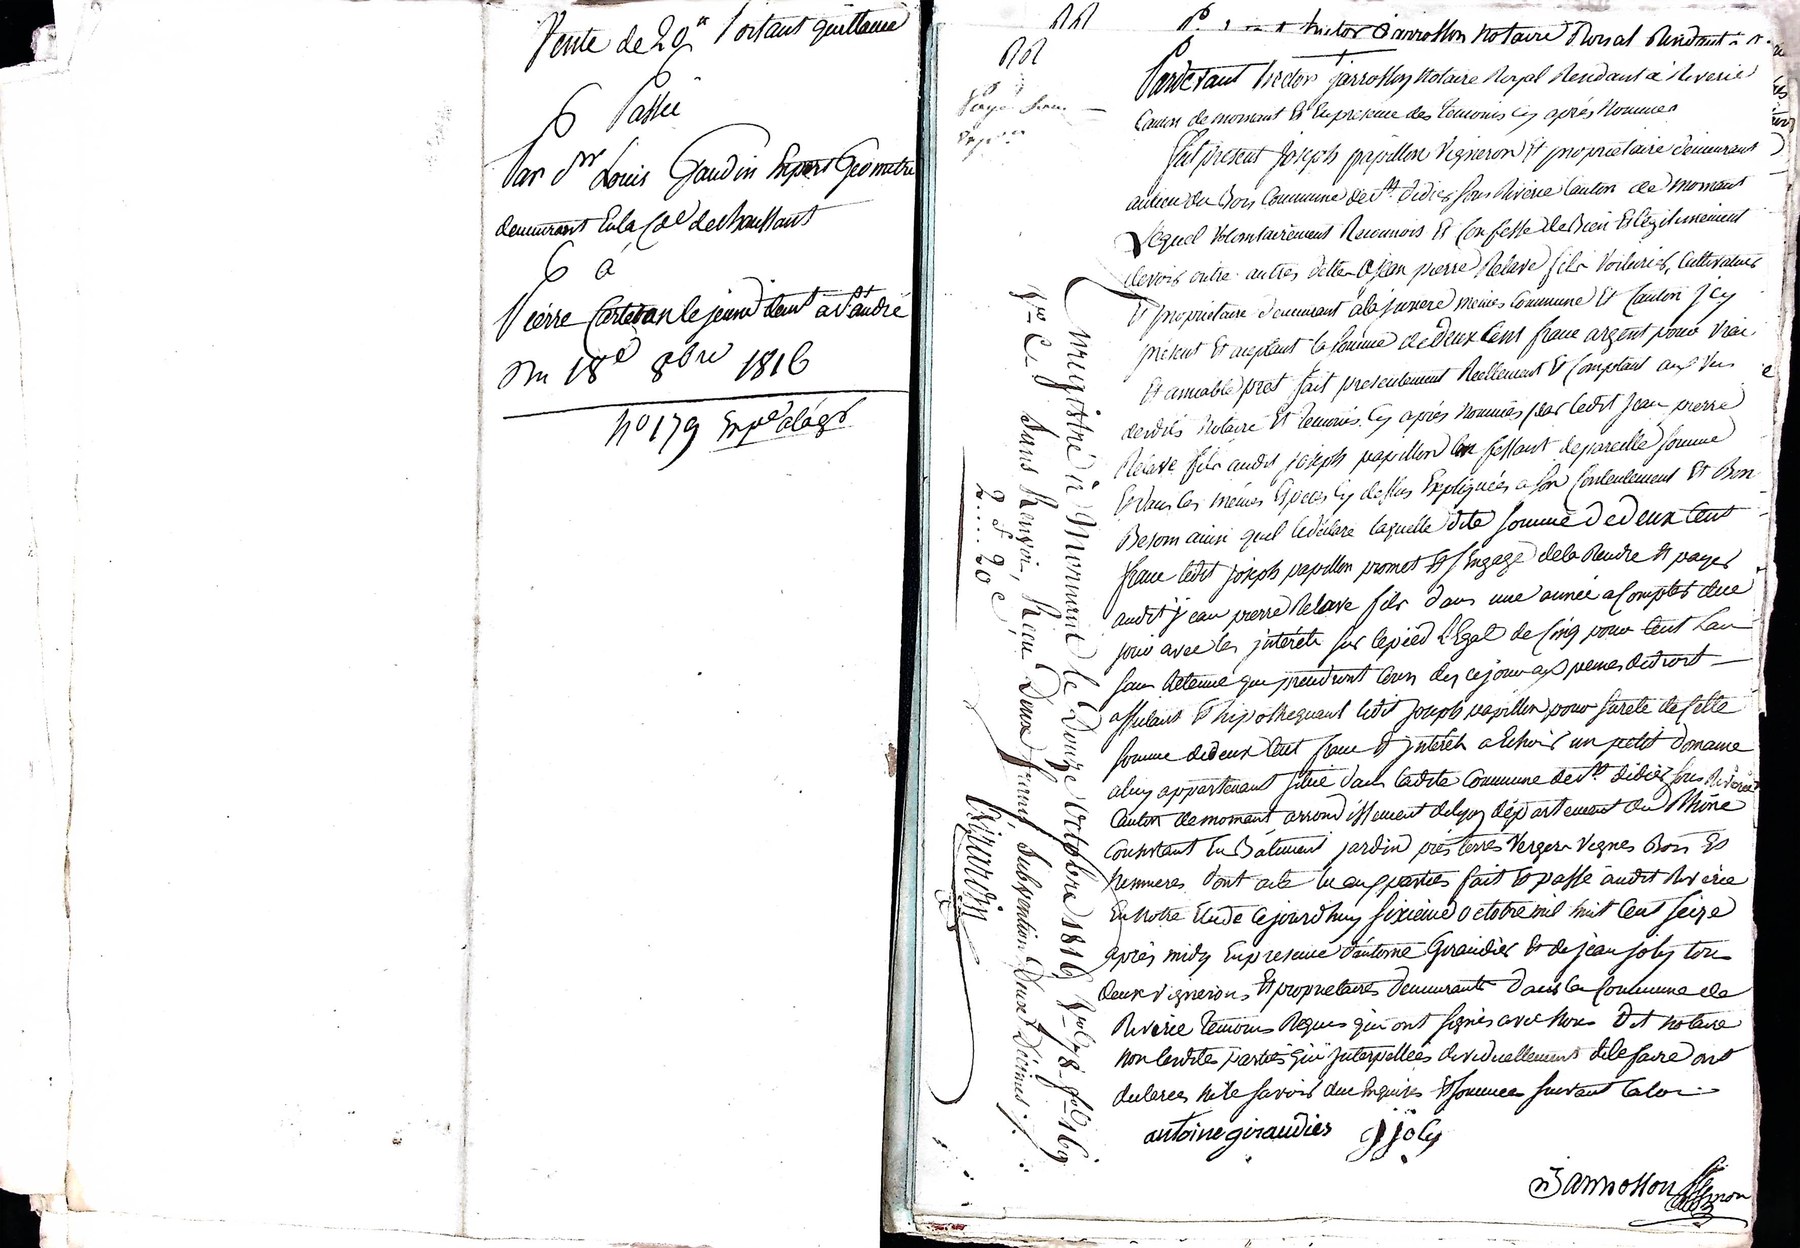 Vente de 29ⁿ Portant quittance
Passée
Par Sr Louis Gaudin Expert Géomêtre
demeurant En la Cne de chaussant
à
Pierre Carteron le jeune demt a St andré
Du 18e 8bre 1816
No 179
Pardevant hector Jarrosson Notaire Royal Residant à Riverie
Canton de mornant Et En presence des temoins cy après Nommés
fut présent Joseph papillon Vigneron Et propriétaire demeurant
au lieu du Bois Commune de St didier sous Riverie Canton de mornant
Lequel Volontairement Reconnois Et Confesse de Bien Et légitimement
devoir outre autres dettes a Jean pierre Relave fils Voiturier, Cultivateur
Et propriétaire demeurant à la même Commune Et Canton Jcy
présent Et aceptant la somme de deux Cent franc argent pour vrai
Et amiable prêt fait presentement Réellement Et Comptant aux vus
desdits Notaire Et temoins Cy après nommés par ledit Jean pierre
Relave fils audit joseph papillon de pareille somme
Et dans les mêmes Especes Cy dessus Expliquées a son Contentement Et Bon
Besoin ainsi quil le déclare laquelle dite somme de deux Cent
franc ledit joseph papillon promet Et s'Engage de la Rendre Et payer
audit jean pierre Relave fils dans une année a Compter de Ce
jour avec les jnterêts sur le pied légal de Cinq pour Cent l'an
sans Retenue qui prendront Cours des ce jour aux peines de droit
affectant Et hipothequant ledit Joseph papillon pour sureté de Cette
somme de deux Cent franc Et jnterêts a Echoir un petit domaine
a luy appartenant situé dans ladite Commune de St didier sous Riverie
Canton de mornant arrondissement de Lyon département du Rhône
Consistant En Bâtiment jardin prés terres Verger Vignes Bois Et
hermeres dont acte lu aux parties fait Et passé audit Riverie
En notre Etude Cejourdhuy sixième octobre mil huit Cent seize
après midy En presence d'antoine Giraudier Et de jean joly tous
deux vignerons Et propriétaires demeurants dans la Commune de
Riverie temoins Requis qui ont signés avec Nous dit notaire
non lesdites parties qui jnterpellées de le faire ont
declarées ne le savoir dûe Enquises Et sommées suivant la loi
antoine giraudier jjoly
Jarrosson
Enregistré à Mornant le Douze octobre 1816, Vol. 18 fo 169
Vo Ce Sans Renvoi, Reçu Deux francs, Subvention Deux Décimes
2 f 20 c
Girardin